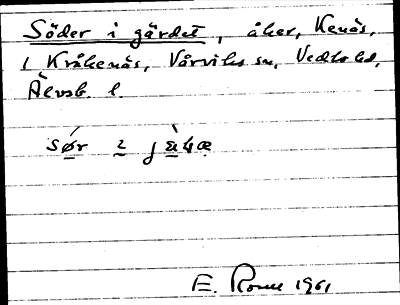 Söder i gärdet, åker, Kenäs,
1 Kråkenäs, Vårviks sn, Vedbo hd,
Älvsb. l.
sør i
E. Rome 1961